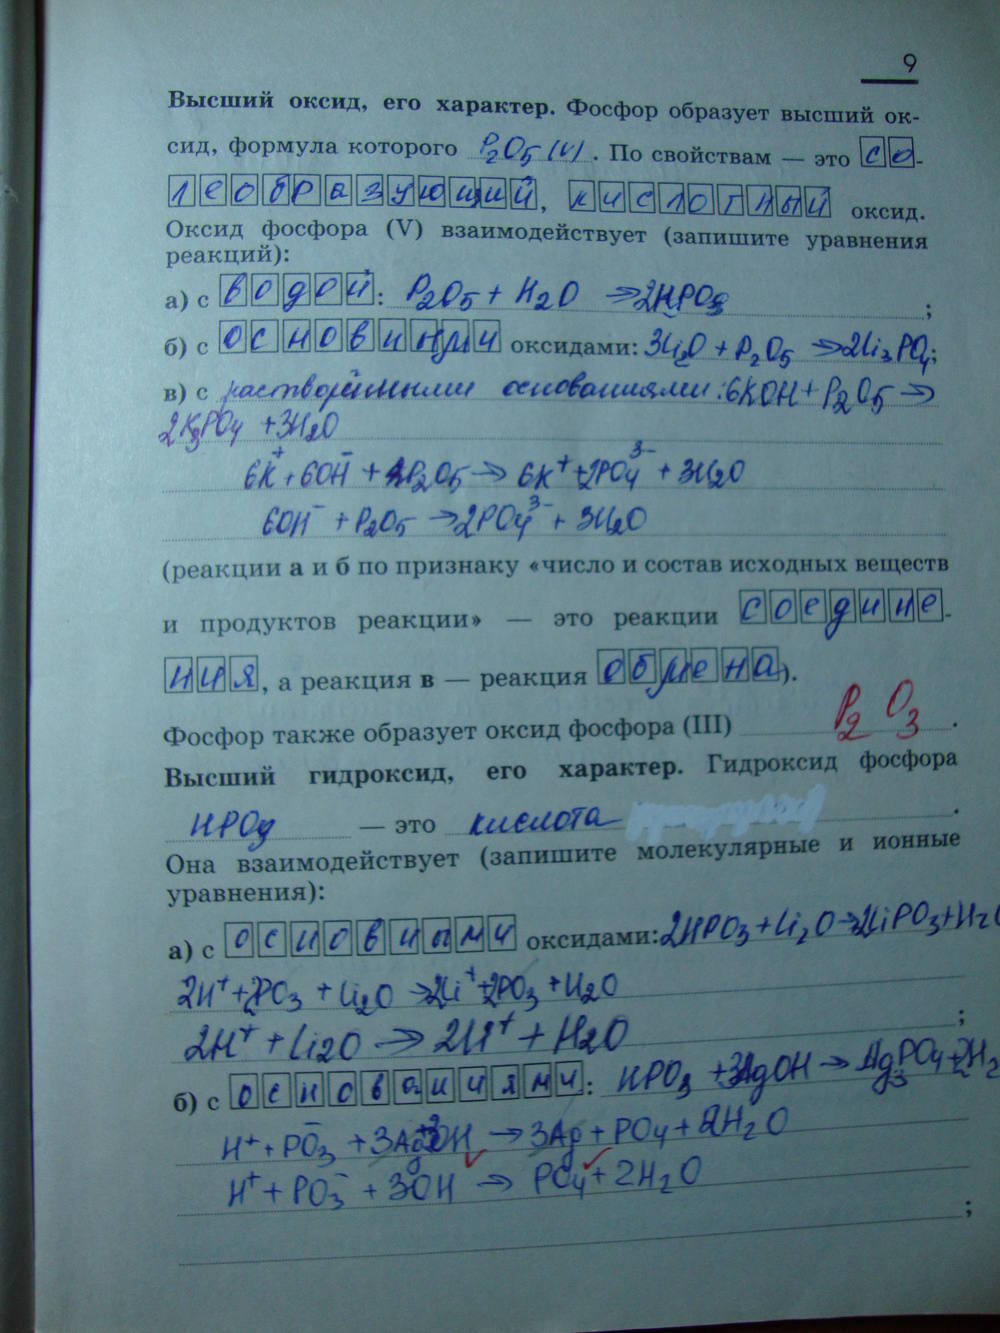 9
Высший оксид, его характер. Фосфор образует высший ок-
сид, формула которого P₂O₅ (V). По свойствам — это со-
леобразующий, кислотный оксид.
Оксид фосфора (V) взаимодействует (запишите уравнения
реакций):
а) с водой: P₂O₅ + H₂O → 2HPO₃;
б) с основными оксидами: 3Li₂O + P₂O₅ → 2Li₃PO₄;
в) с растворёнными основаниями: 6KOH + P₂O₅ →
2K₃PO₄ + 3H₂O
6K⁺ + 6OH⁻ + P₂O₅ → 6K⁺ + 2PO₄³⁻ + 3H₂O
6OH⁻ + P₂O₅ → 2PO₄³⁻ + 3H₂O
(реакции а и б по признаку «число и состав исходных веществ
и продуктов реакции» — это реакции соедине-
ния, а реакция в — реакция обмена).
Фосфор также образует оксид фосфора (III) P₂O₃.
Высший гидроксид, его характер. Гидроксид фосфора
HPO₃ — это кислота.
Она взаимодействует (запишите молекулярные и ионные
уравнения):
а) с основными оксидами: 2HPO₃ + Li₂O → 2LiPO₃ + H₂O
2H⁺ + 2PO₃ + Li₂O → 2Li⁺ + 2PO₃ + H₂O
2H⁺ + Li₂O → 2Li⁺ + H₂O;
б) с основаниями: HPO₃ + 3AgOH → Ag₃PO₄ + 2H₂
H⁺ + PO₃⁻ + 3AgOH → 3Ag + PO₄ + 2H₂O
H⁺ + PO₃⁻ + 3OH → PO₄ + 2H₂O
;